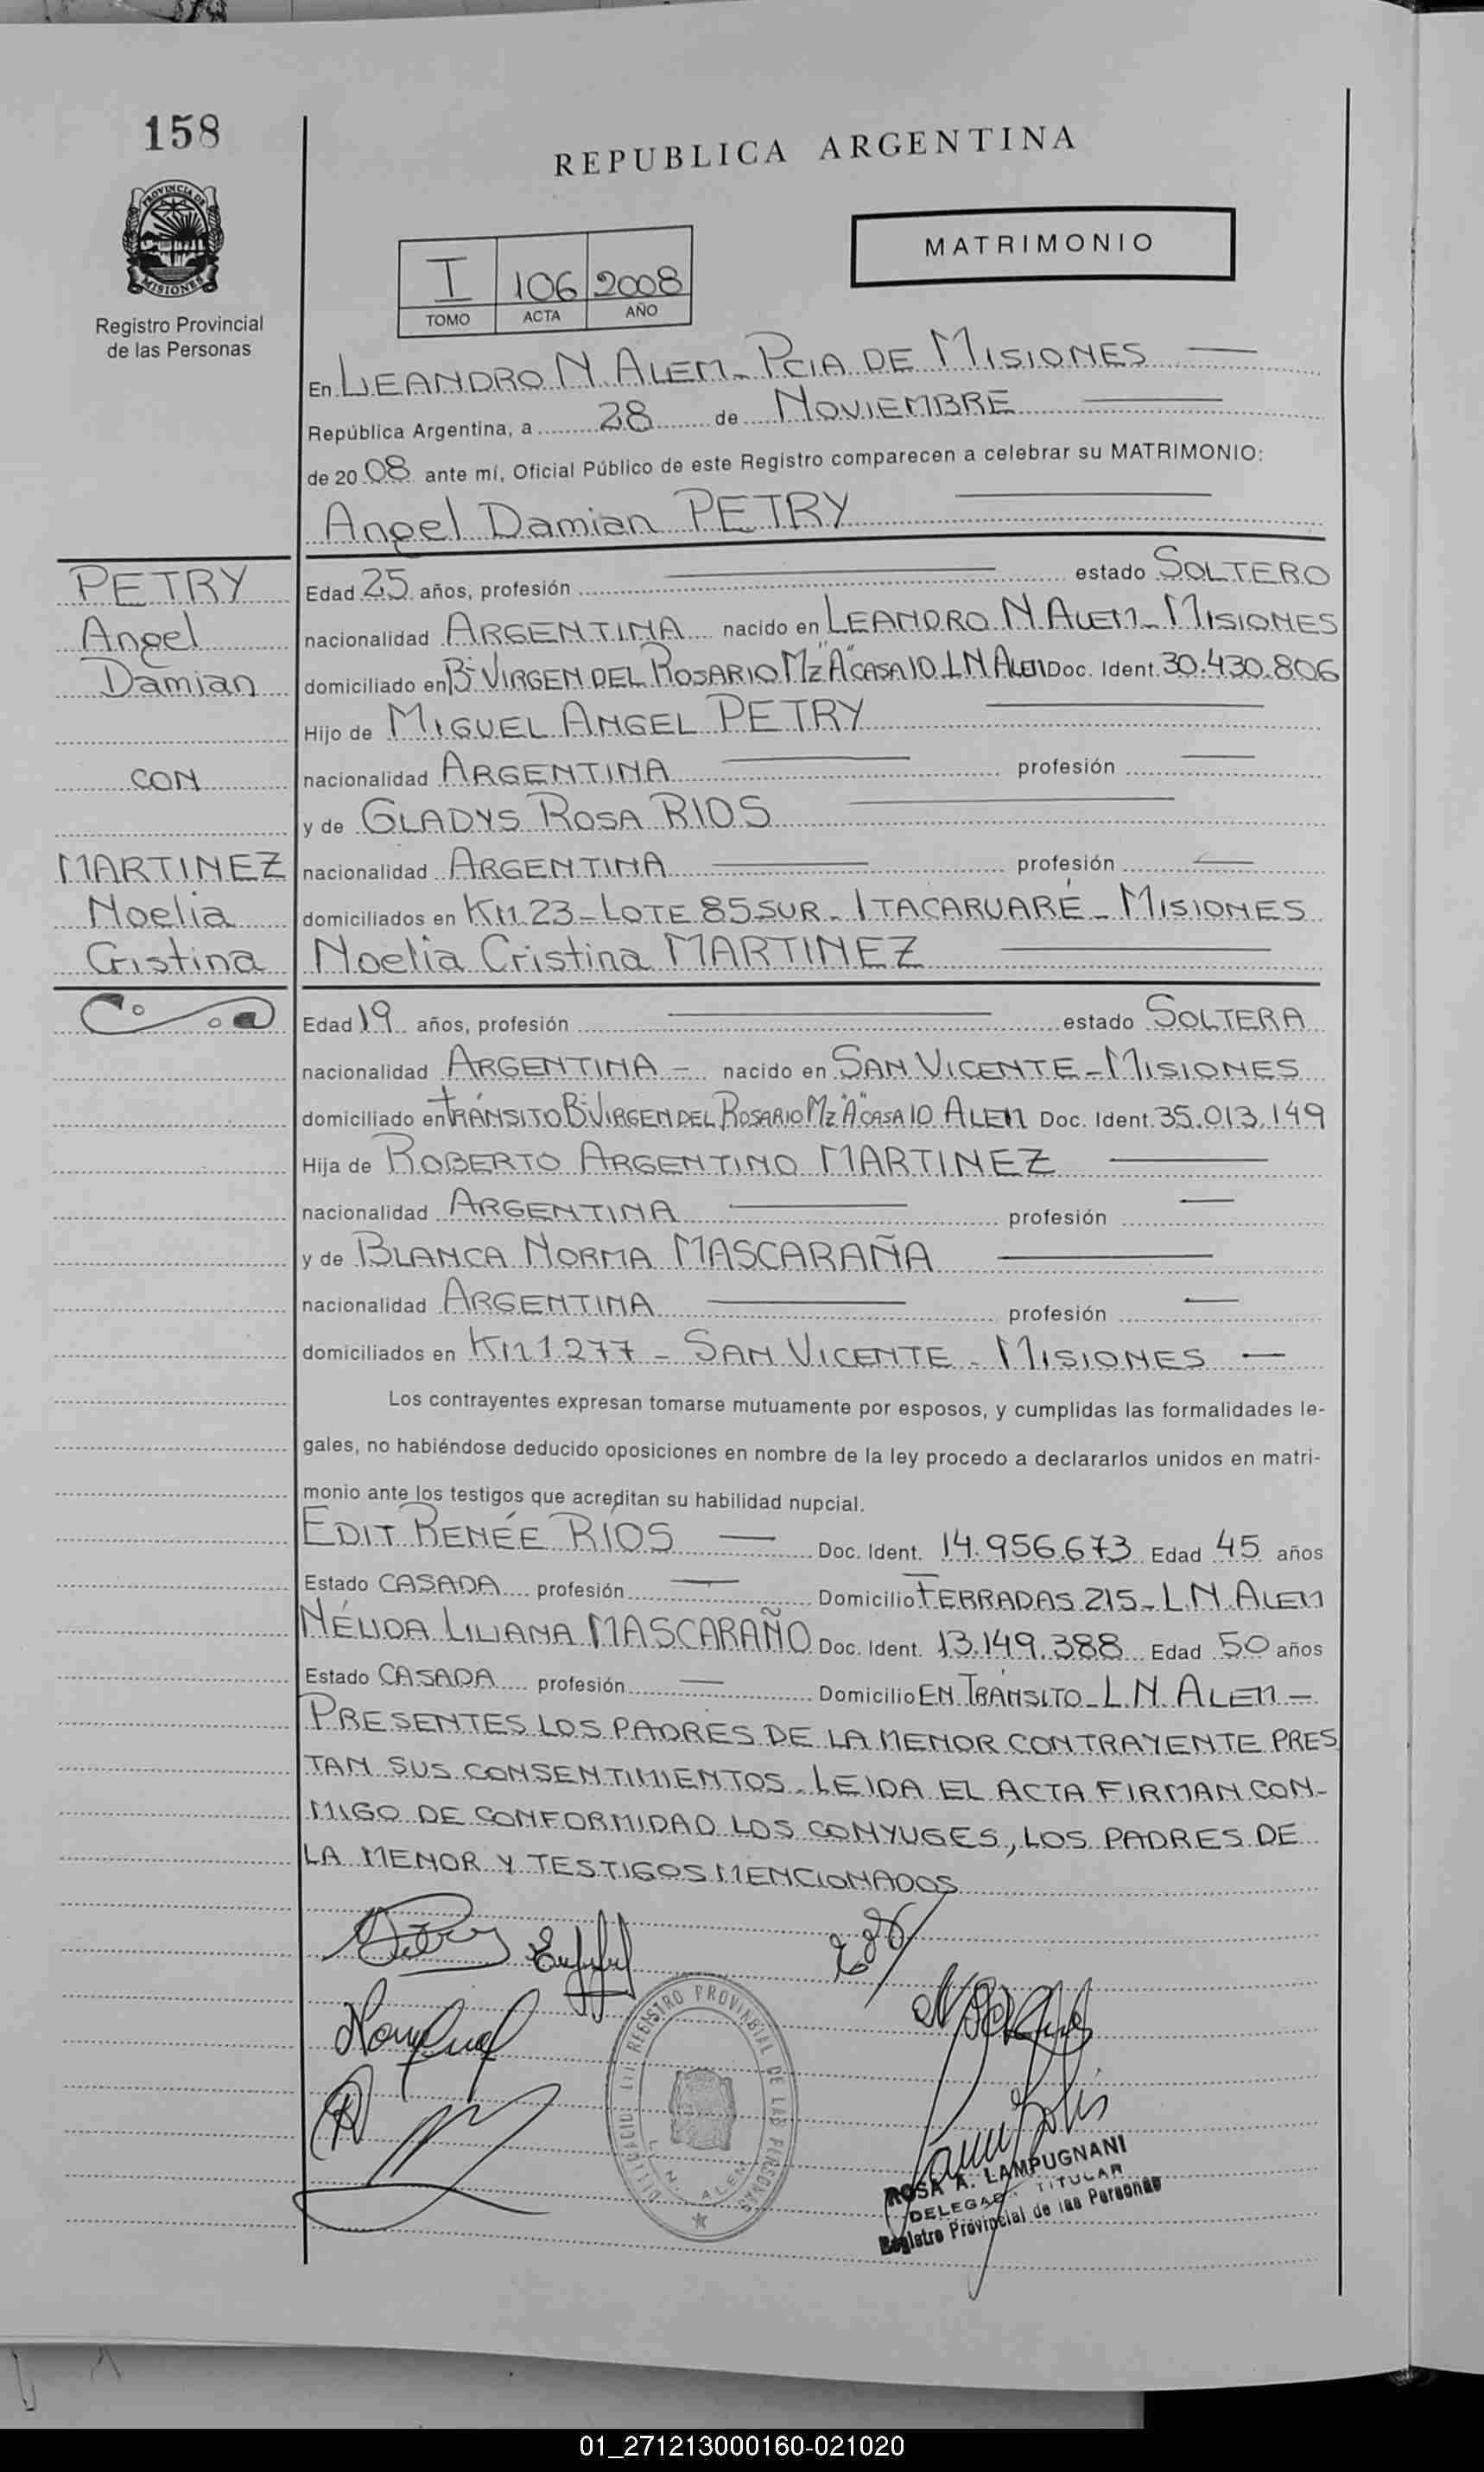 158
REPUBLICA ARGENTINA
PROVINCIA DE
MISIONES
Registro Provincial
de las Personas
MATRIMONIO
I 106 2008
TOMO ACTA AÑO
En LEANDRO N. ALEM - PCIA DE MISIONES
República Argentina, a 28 de NOVIEMBRE
de 2008 ante mí, Oficial Público de este Registro comparecen a celebrar su MATRIMONIO:
Angel Damian PETRY
PETRY
Angel
Damian
CON
MARTINEZ
Noelia
Cristina
Edad 25 años, profesión estado SOLTERO
nacionalidad ARGENTINA nacido en LEANDRO N ALEM - MISIONES
domiciliado en Bº VIRGEN DEL ROSARIO MZ "A" CASA 10 L N ALEM Doc. Ident. 30.430.806
Hijo de MIGUEL ANGEL PETRY
nacionalidad ARGENTINA profesión
y de GLADYS ROSA RIOS
nacionalidad ARGENTINA profesión
domiciliados en KM 23 - LOTE 85 SUR - ITACARUARÉ - MISIONES
Noelia Cristina MARTINEZ
Edad 19 años, profesión estado SOLTERA
nacionalidad ARGENTINA - nacido en SAN VICENTE - MISIONES
domiciliado en TRÁNSITO Bº VIRGEN DEL ROSARIO MZ "A" CASA 10 ALEM Doc. Ident. 35.013.149
Hija de ROBERTO ARGENTINO MARTINEZ
nacionalidad ARGENTINA profesión
y de BLANCA NORMA MASCARAÑA
nacionalidad ARGENTINA profesión
domiciliados en KM 1.277 - SAN VICENTE - MISIONES
Los contrayentes expresan tomarse mutuamente por esposos, y cumplidas las formalidades le-
gales, no habiéndose deducido oposiciones en nombre de la ley procedo a declararlos unidos en matri-
monio ante los testigos que acreditan su habilidad nupcial.
EDIT RENÉE RÍOS Doc. Ident. 14.956.673 Edad 45 años
Estado CASADA profesión Domicilio FERRADAS 215 - L.N. ALEM
NÉLIDA LILIANA MASCARAÑO Doc. Ident. 13.149.388 Edad 50 años
Estado CASADA profesión Domicilio EN TRÁNSITO - L.N. ALEM -
PRESENTES LOS PADRES DE LA MENOR CONTRAYENTE PRES
TAN SUS CONSENTIMIENTOS - LEIDA EL ACTA FIRMAN CON-
MIGO DE CONFORMIDAD LOS CONYUGES, LOS PADRES DE
LA MENOR Y TESTIGOS MENCIONADOS
REGISTRO PROVINCIAL DE LAS PERSONAS
L. N. ALEM
ROSA A. LAMPUGNANI
DELEGADA TITULAR
Registro Provincial de las Personas
01_271213000160-021020